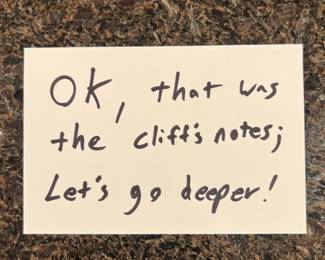 OK, that was
the cliff's notes;
Let's go deeper!